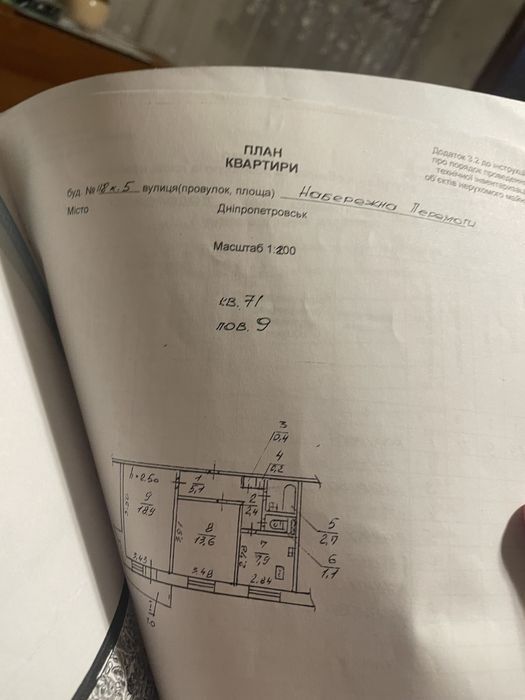 ПЛАН
КВАРТИРИ
Додаток 3.2 до інструкц
про порядок проведен
технічної інвентариза
об'єктів нерухомого май
буд. № 118 к. 5 вулиця(провулок, площа) Набережна Перемоги
Місто Дніпропетровськ
Масштаб 1:200
кв. 71
пов. 9
3
0,4
4
0,2
h=2.50
1
5,1
2
2,4
9
18,9
8
13,6
7
7,9
5
2,7
6
1,1
3.43
3.48
2.78
2.84